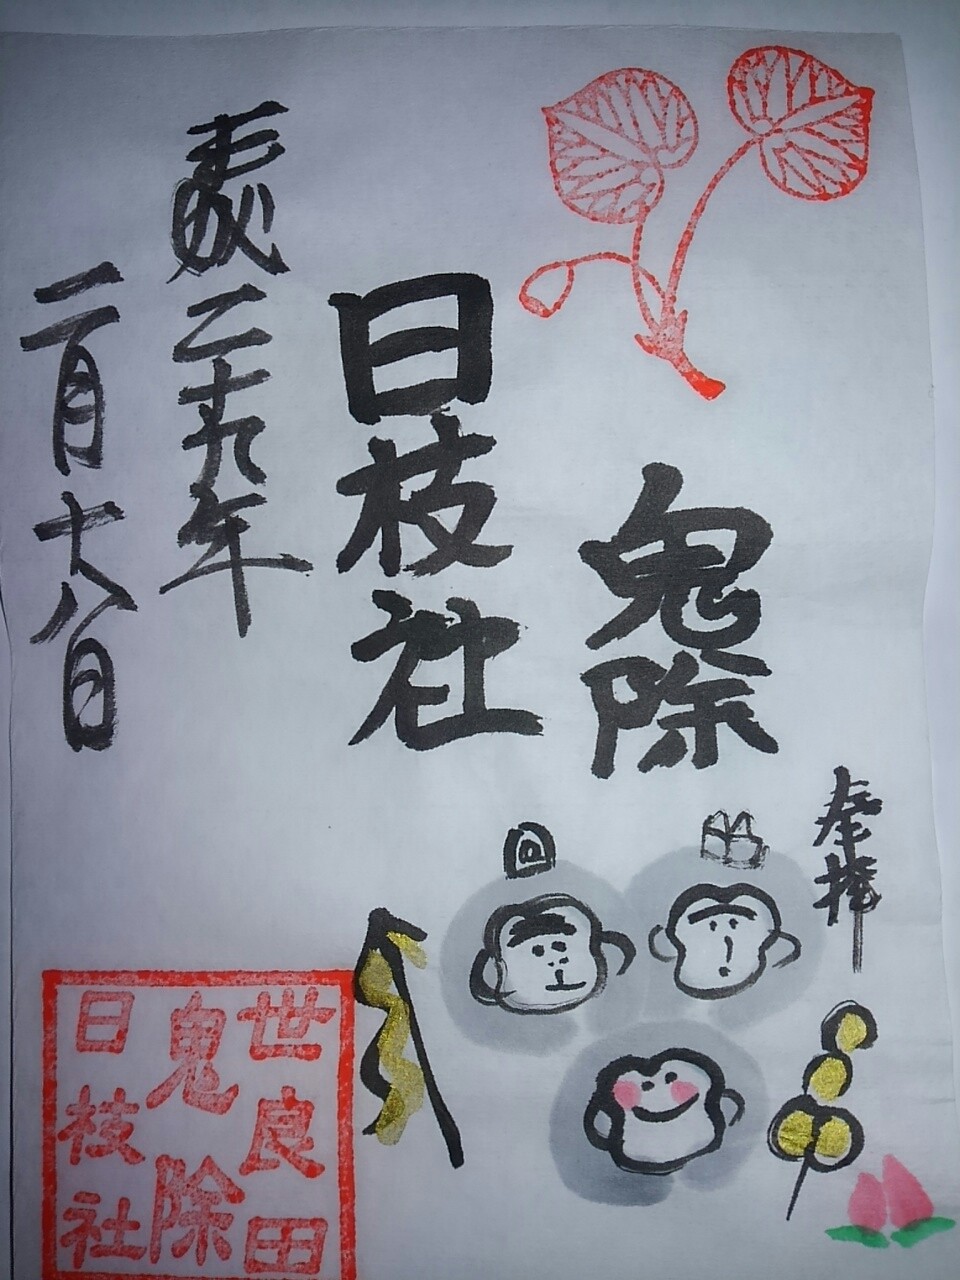 奉拝
鬼除
日枝社
平成二十九年
二月十八日
世良田
鬼除
日枝社